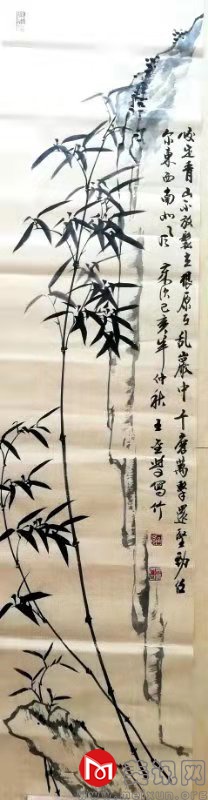 咬定青山不放鬆立根原在乱巖中千磨萬擊還堅勁任
尔東西南北风 歲次己亥年仲秋王學寫竹
讯网